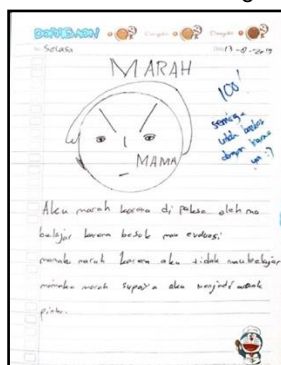 DORAEMON
Selasa
13-8-2019
MARAH
100!
semoga
untuk
dengan
ya :)
MAMA
Aku marah karena di paksa oleh ma
belajar karena besok mau evaluasi
mamaku marah karena aku tidak mau belajar
mamaku marah supaya aku menjadi anak
pintar.